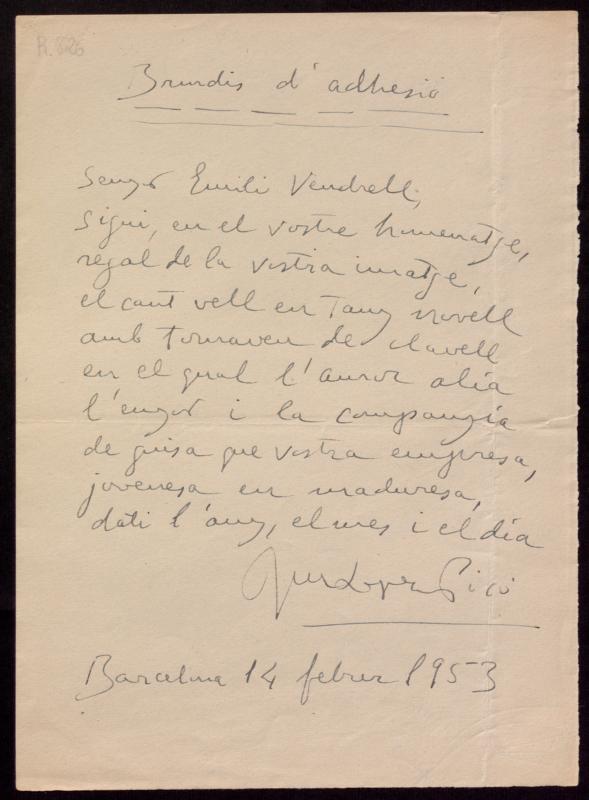 R. 826
Brindis d'adhesió
Senyor Emili Vendrell,
Sigui, en el vostre homenatge,
regal de la vostra imatge,
el cant vell en tany novell
amb tornaveu de clavell
en el qual l'amor alia
l'enyor i la companyia
de guisa que vostra empresa,
jovenesa en maduresa,
dati l'any, el mes i el dia
Barcelona 14 febrer 1953